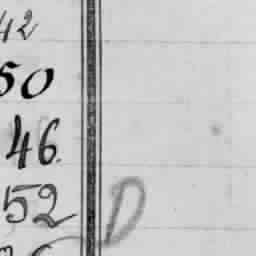 42
50
46.
52 D